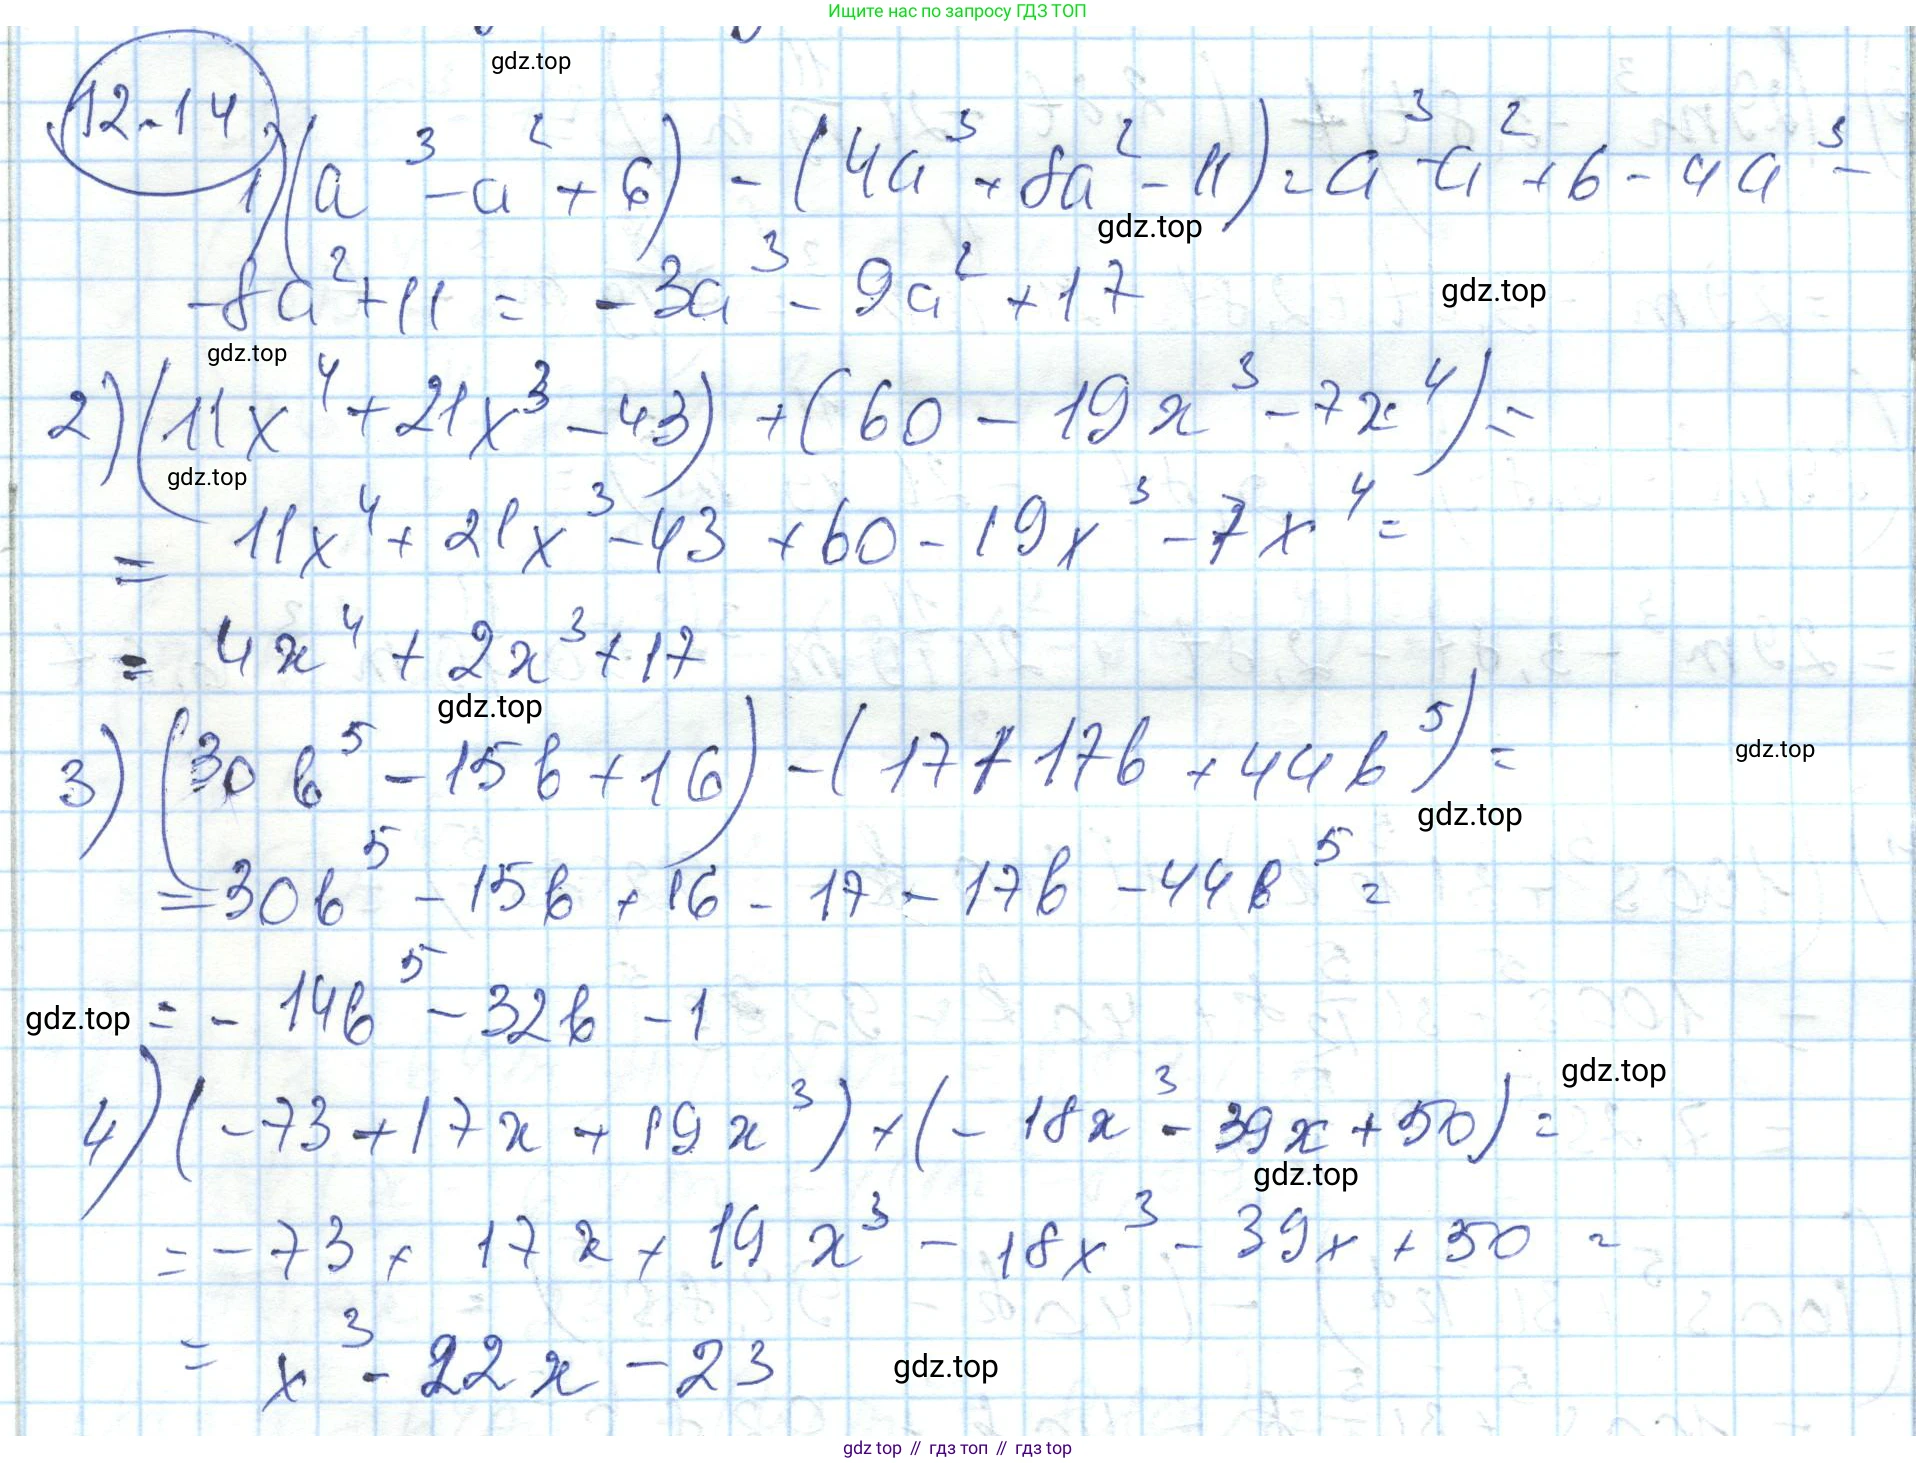 Ищите нас по запросу ГДЗ ТОП
gdz.top
12.14
1) (a³ - a² + 6) - (4a³ + 8a² - 11) = a³ - a² + 6 - 4a³ -
gdz.top
- 8a² + 11 = - 3a³ - 9a² + 17
gdz.top
gdz.top
2) (11x⁴ + 21x³ - 43) + (60 - 19x³ - 7x⁴) =
gdz.top
= 11x⁴ + 21x³ - 43 + 60 - 19x³ - 7x⁴ =
= 4x⁴ + 2x³ + 17
gdz.top
3) (30b⁵ - 15b + 16) - (17 + 17b + 44b⁵) =
gdz.top
gdz.top
= 30b⁵ - 15b + 16 - 17 - 17b - 44b⁵ =
= - 14b⁵ - 32b - 1
gdz.top
4) (-73 + 17x + 19x³) + (- 18x³ - 39x + 50) =
gdz.top
gdz.top
= - 73 + 17x + 19x³ - 18x³ - 39x + 50 =
= x³ - 22x - 23
gdz.top
gdz top // гдз топ // гдз top